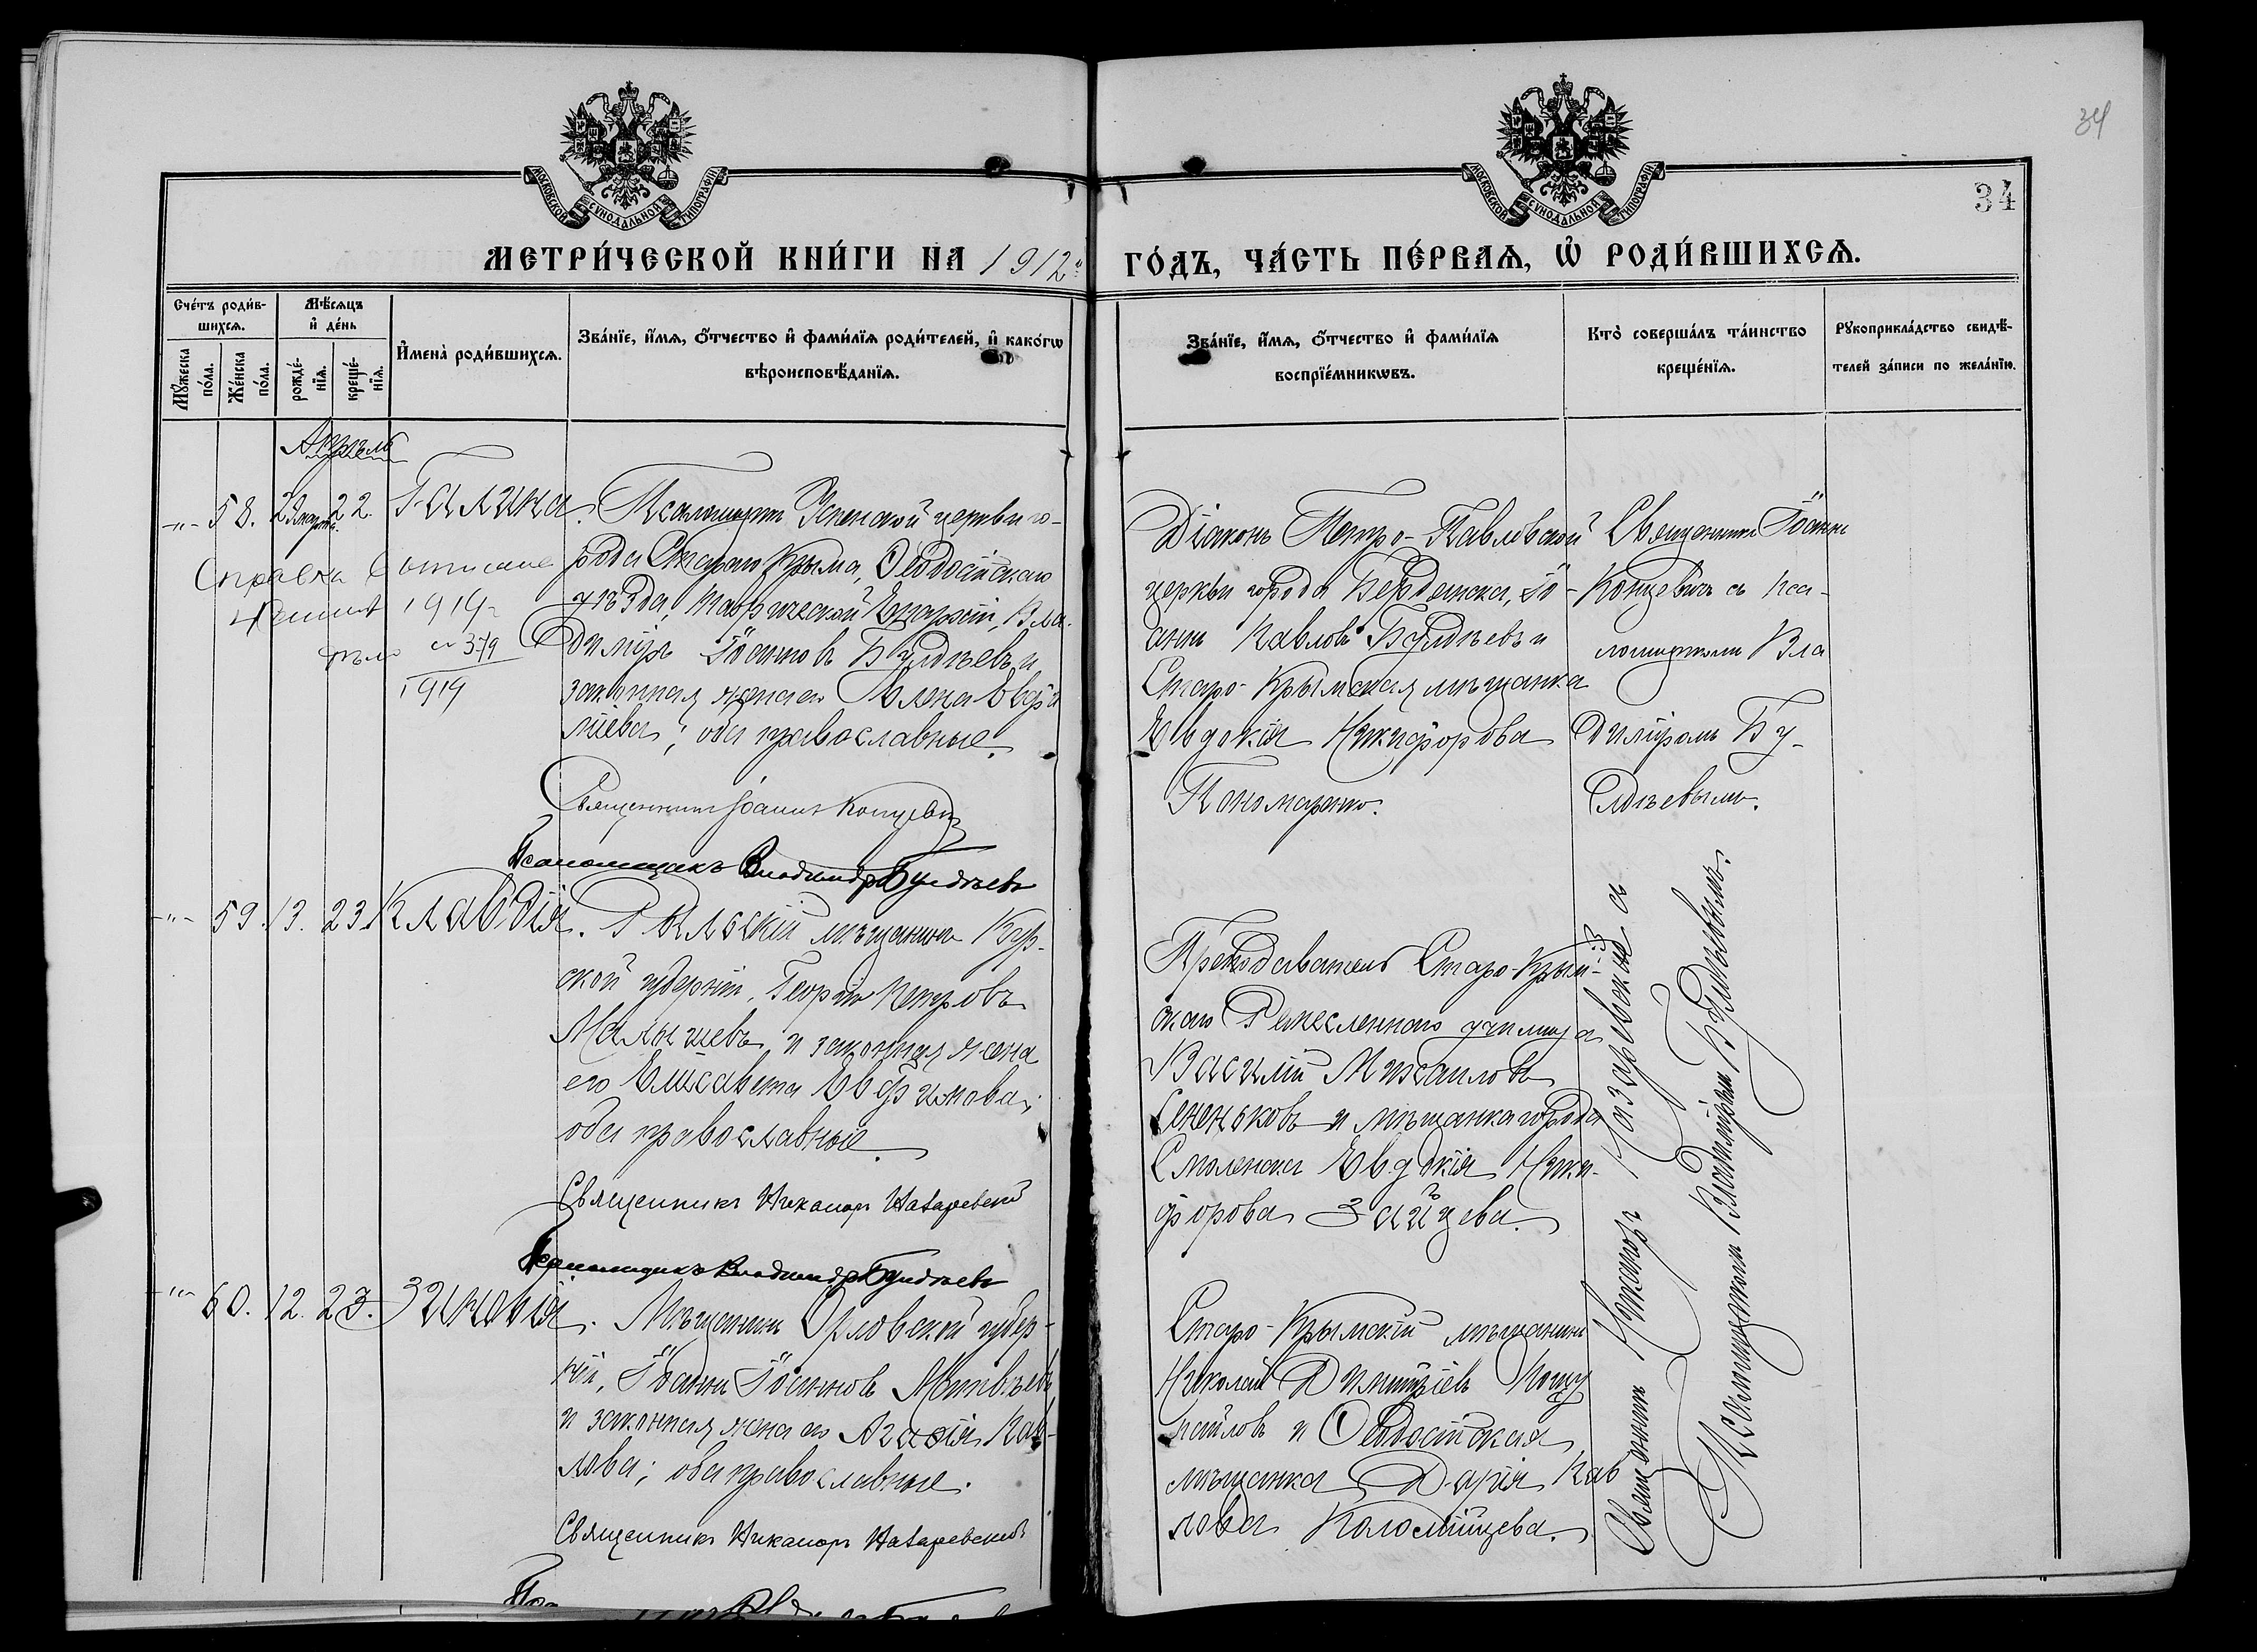 34
34
МОСКОВСКОЙ СѴНОДАЛЬНОЙ ТИПОГРАФІИ
МОСКОВСКОЙ СѴНОДАЛЬНОЙ ТИПОГРАФІИ
МЕТРИ́ЧЕСКОЙ КНИ́ГИ НА 1912й ГО́ДЪ, ЧА́СТЬ ПЕ́РВАѦ, Ѡ҆ РОДИ́ВШИХСѦ.
Сче́тъ роди́в-
шихсѧ.
Мꙋ́жеска
по́ла.
Же́нска
по́ла.
Мѣ́сѧцъ
и҆ де́нь
рожде́-
нїѧ.
креще́-
нїѧ.
И҆мена̀ роди́вшихсѧ.
Зва́нїе, и҆́мѧ, ѻ҆́тчество и҆ фами́лїѧ роди́телей, и҆ како́гѡ
вѣроисповѣ́данїѧ.
Зва́нїе, и҆́мѧ, ѻ҆́тчество и҆ фами́лїѧ
воспрїе́мникѡвъ.
Кто̀ соверша́лъ та́инство
креще́нїѧ.
Рꙋкоприкла́дство свидѣ́-
телей за́писи по жела́нїю.
Апрѣль
-"- 58. 29 марта. 22. Галина. Псаломщикъ Успенской церкви го-
рода Стараго Крыма, Ѳеодосійскаго
уѣзда, Таврической Епархіи, Вла-
диміръ Іоанновъ Булдѣевъ и
законная жена его Елена Евѳи
міева; оба православные.
Справка
1914
1914
Священникъ Іоаннъ Концевичъ
Псаломщикъ Владиміръ Булдѣевъ
Діаконъ Петро-Павловской
церкви города Бердянска, Іо-
аннъ Павловъ Булдѣевъ и
Старо-Крымская мѣщанка
Евдокія Никифорова
Пономаренко.
Священникъ Іоаннъ
Концевичъ съ пса-
ломщикомъ Вла
диміромъ Бу-
лдѣевымъ.
-"- 59. 13. 23. Клавдія. Рыльскій мѣщанинъ Кур-
ской губерніи, Георгій Петровъ
Малышевъ и законная жена
его Елисавета Евфимова;
оба православные.
Священникъ Никаноръ Назаревскій
Псаломщикъ Владиміръ Булдѣевъ
Преподаватель Старо-Крым-
скаго Ремесленнаго училища
Василій Михаиловъ
Сеченьковъ и мѣщанка города
Смоленска Евдокія Ники-
форова Зайцева.
Священникъ Никаноръ Назаревскій съ
Псаломщикомъ Владиміромъ Булдѣевымъ.
-"- 60. 12. 23. Зиновія. Мѣщанинъ Орловской губер-
ніи, Іоаннъ Іоанновъ Матвѣевъ
и законная жена его Агафія Пав-
лова; оба православные.
Священникъ Никаноръ Назаревскій
Старо-Крымскій мѣщанинъ
Николай Димитріевъ
и Ѳеодосійская
мѣщанка Дарія Пав
лова Коломійцева.